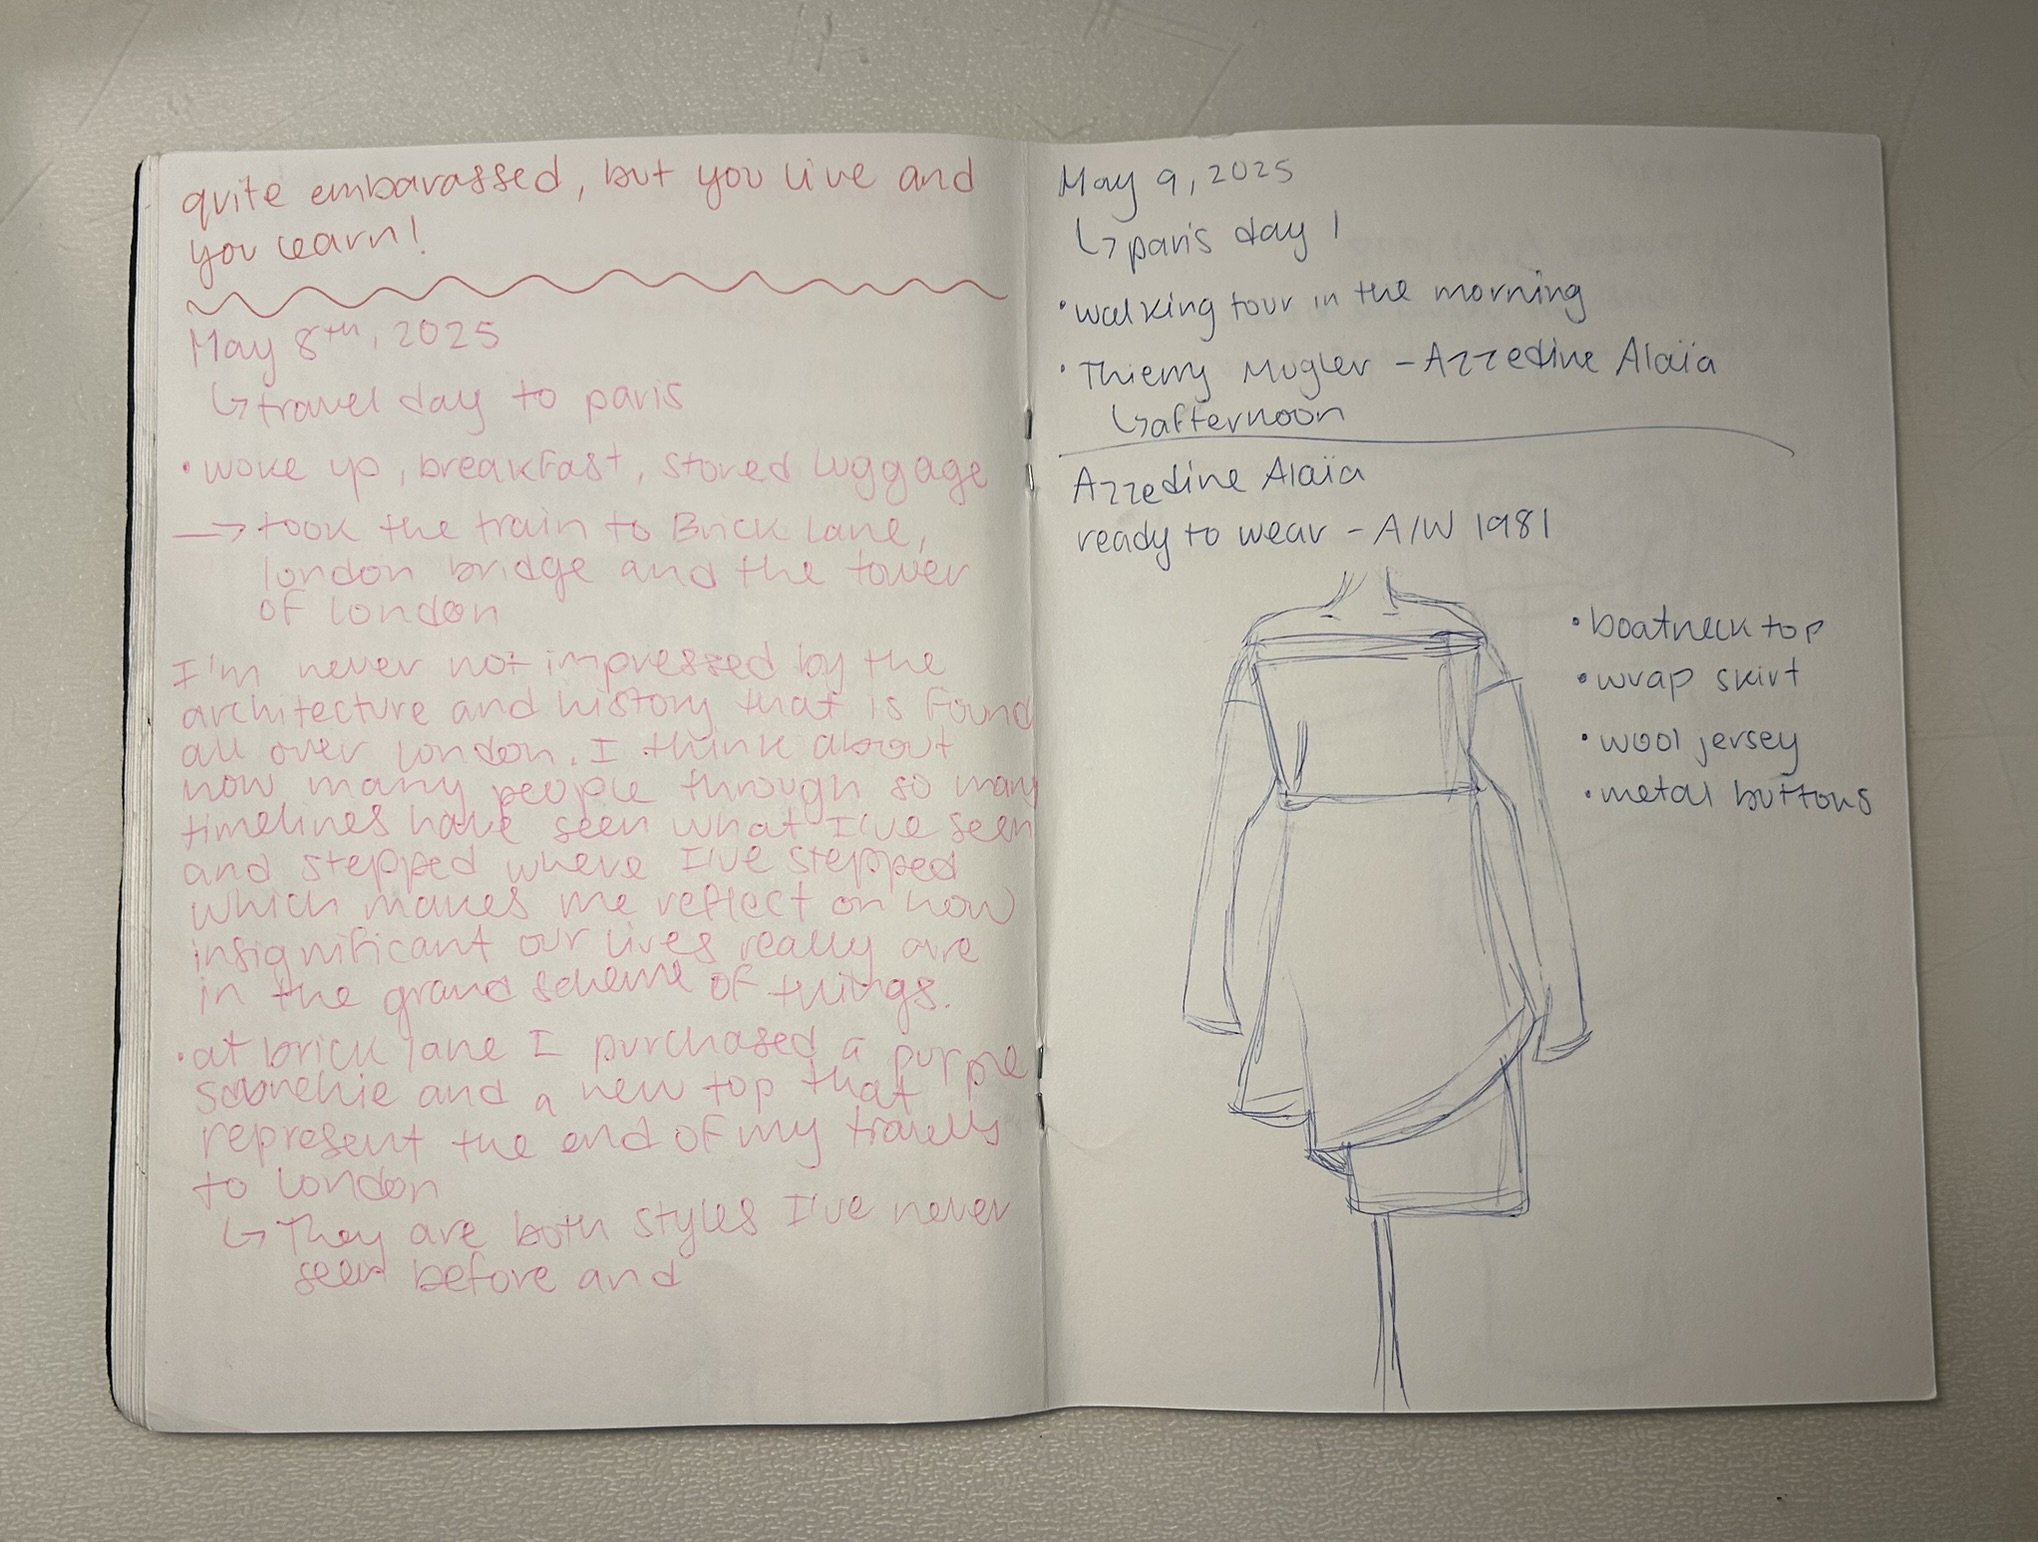 quite embarassed, but you live and
you learn!
May 8th, 2025
↳ travel day to paris
• woke up, breakfast, stored luggage
→ took the train to Brick Lane,
london bridge and the tower
of london
I'm never not impressed by the
architecture and history that is found
all over london. I think about
how many people through so many
timelines have seen what I've seen
and stepped where I've stepped
which makes me reflect on how
insignificant our lives really are
in the grand scheme of things.
• at brick lane I purchased a purple
and a new top that
represent the end of my travels
to london
↳ They are both styles I've never
seen before and
May 9, 2025
↳ paris day 1
• walking tour in the morning
• Thierry Mugler - Azzedine Alaïa
↳ afternoon
Azzedine Alaïa
ready to wear - A/W 1981
• boatneck top
• wrap skirt
• wool jersey
• metal buttons